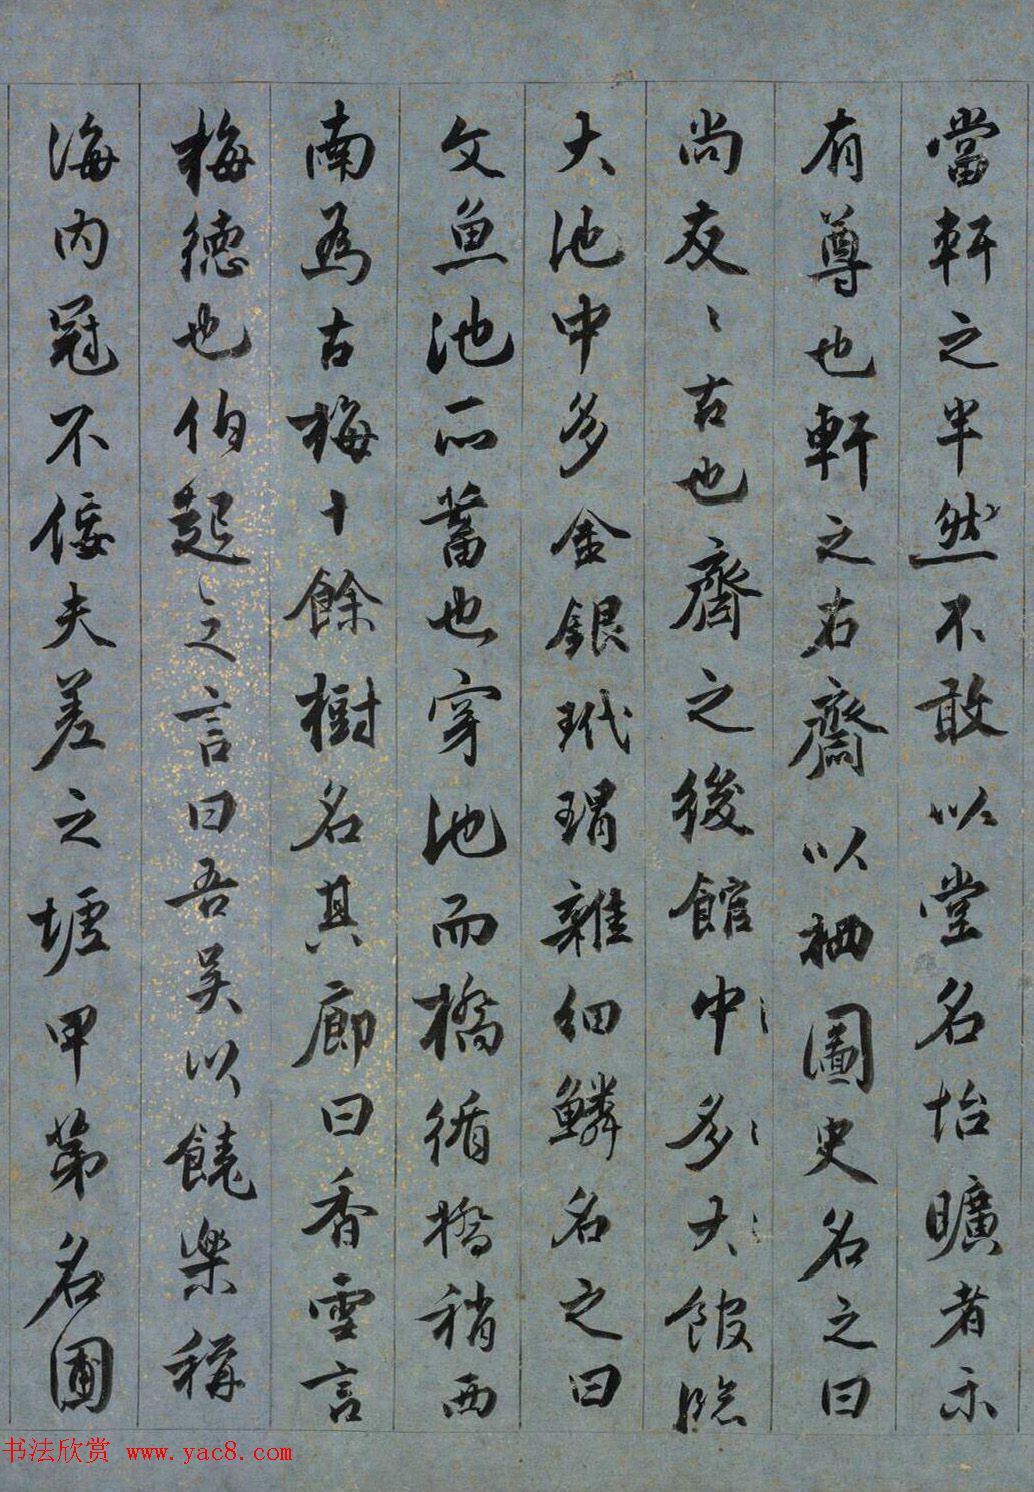 當軒之半然不敢以堂名怡曠者示
有尊也軒之右齋以栖圖史名之曰
尚友〻古也齋之後館中多大館臨
大池中多金銀玳瑁雜細鱗名之曰
文魚池所蓄也穿池而橋循橋稍西
南為古梅十餘樹名其廊曰香雪言
梅德也伯起之言曰吾吴以饒樂稱
海内冠不佞夫差之墟甲第名圃
书法欣赏 www.yac8.com